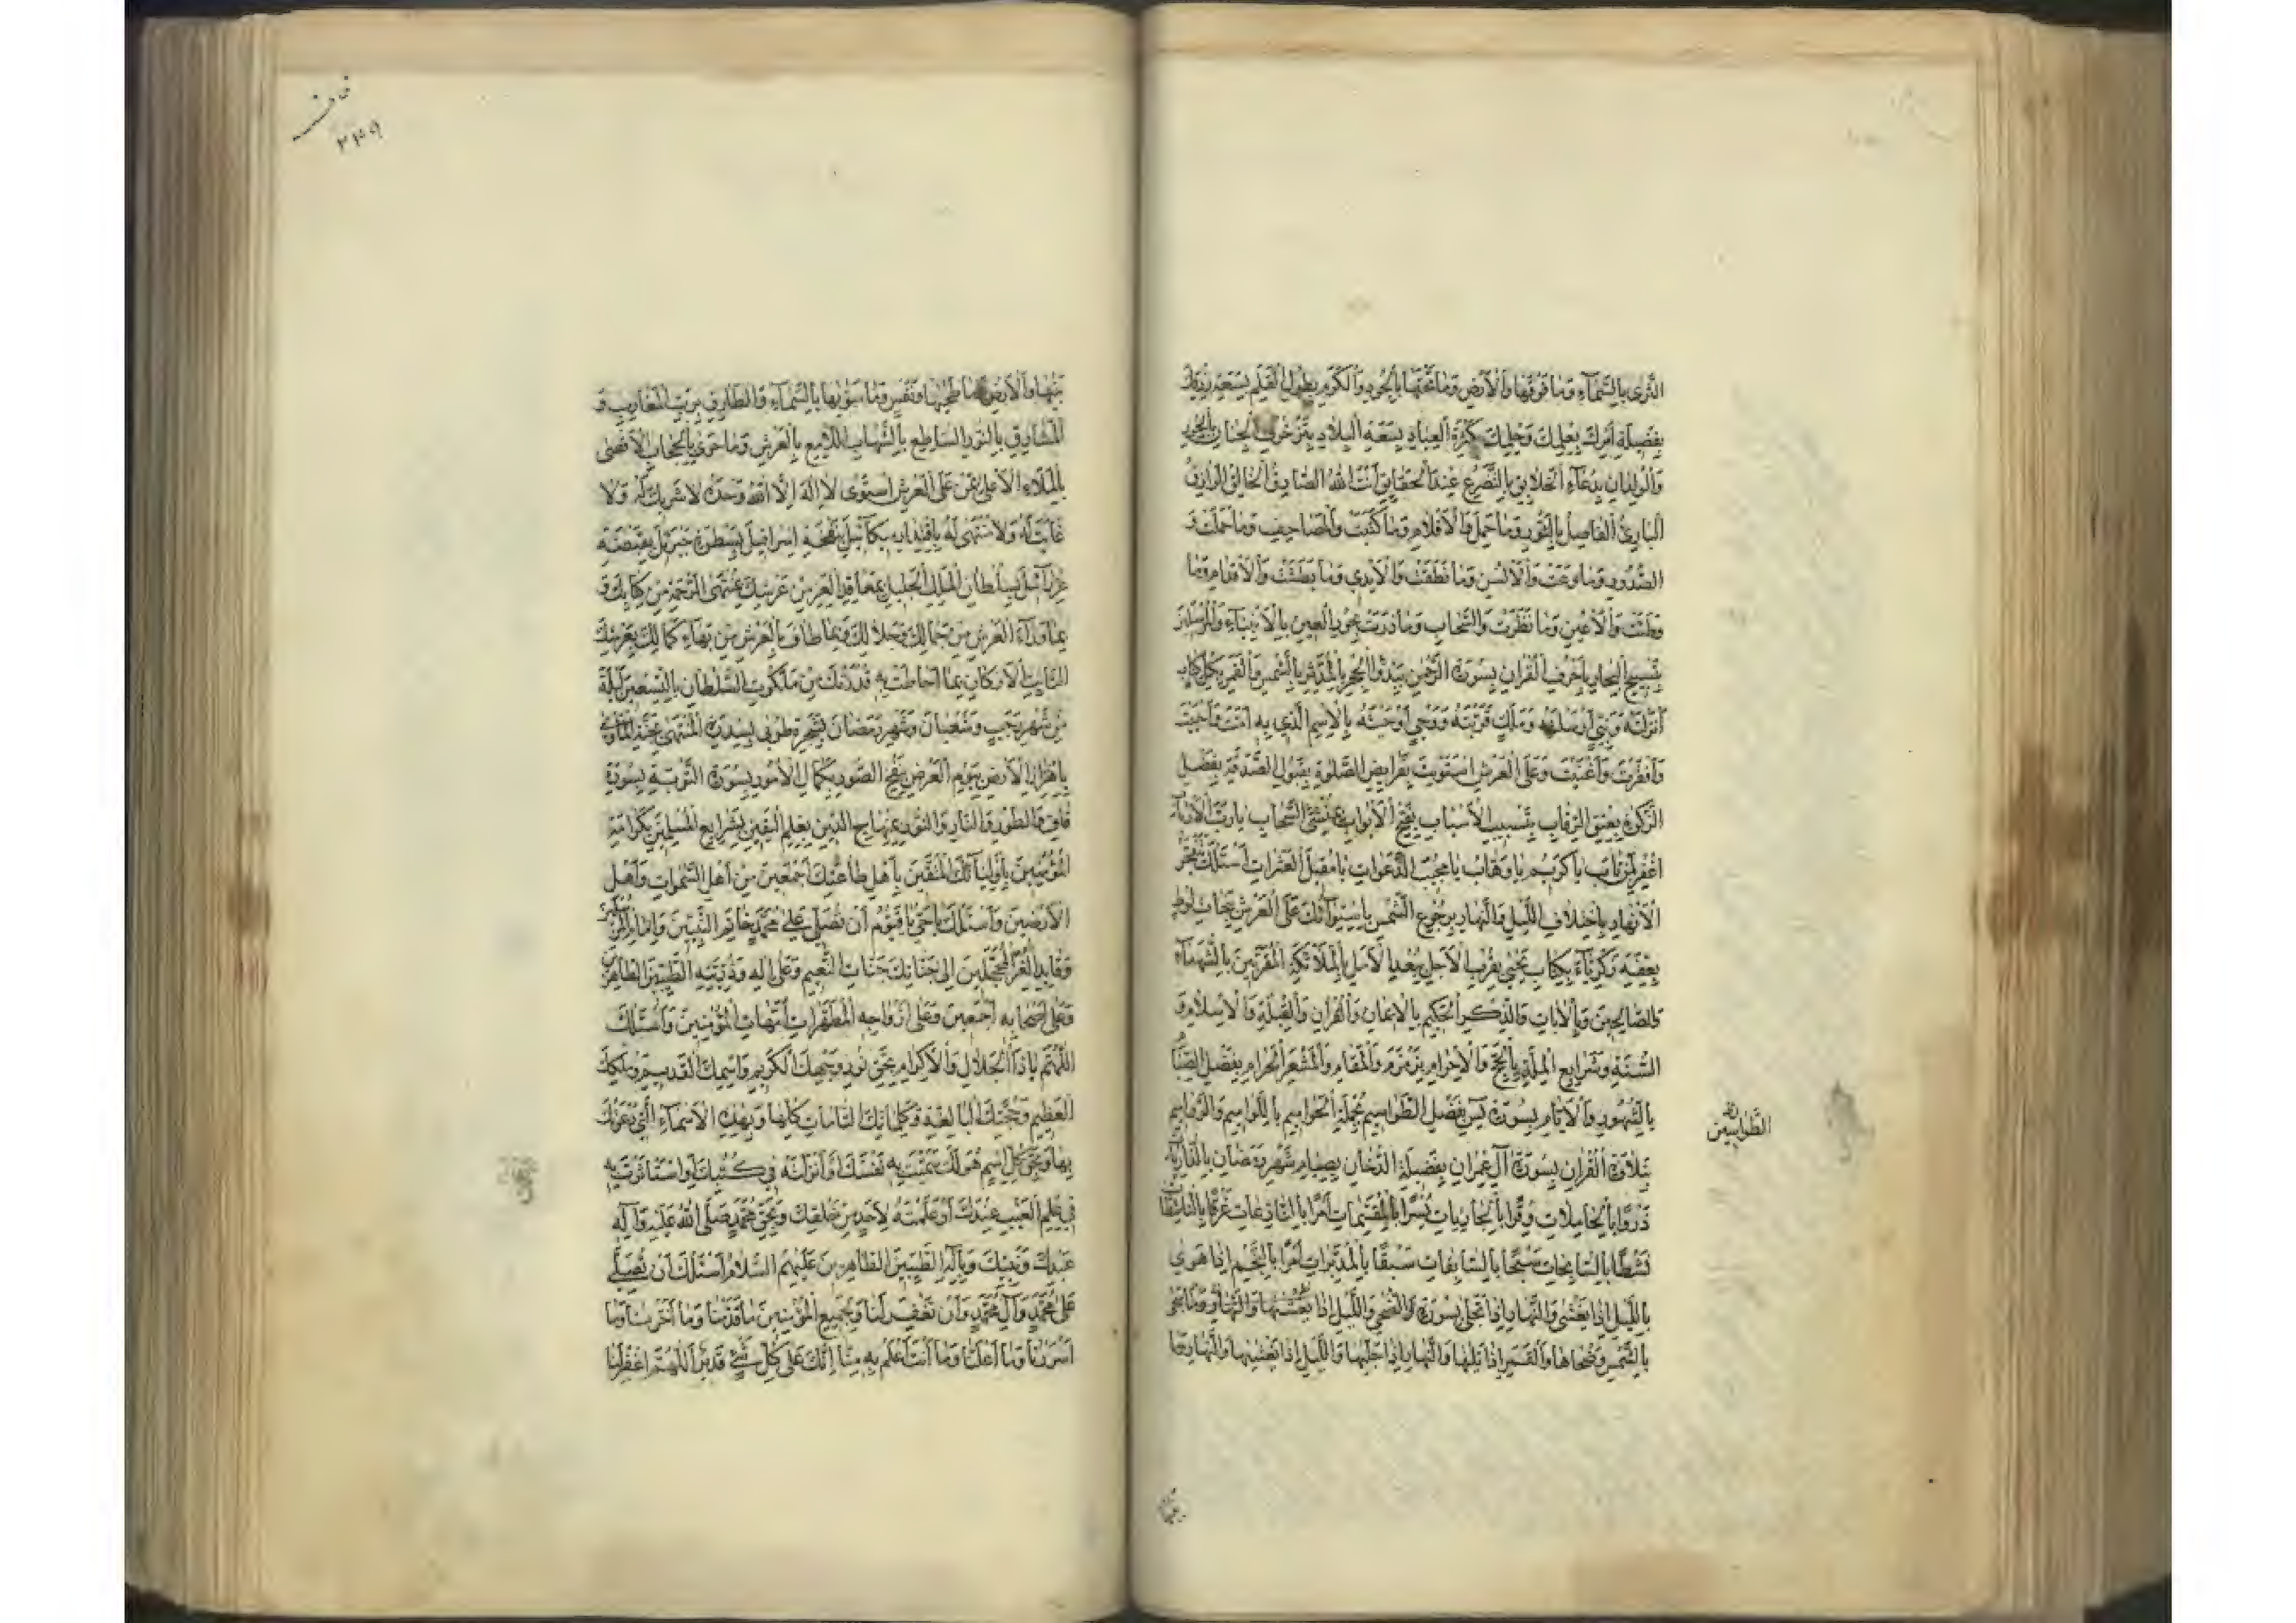 الثَّرى بِالسَّمَآءِ وَما فَوْقَها وَالْأَرْضِ وَما تَحْتَها بِالْجُودِ وَالْكَرَمِ بِطُولِ الْقَلَمِ بِسَعَةِ رِزْقِكَ
بِفَضيلَةِ أَمْرِكَ بِعِلْمِكَ وَحِلْمِكَ بِكَثْرَةِ الْعِبادِ بِسَعَةِ الْبِلادِ بِتَزَخْرُفِ الْجِنانِ بِالْحُورِ
وَالْوِلْدانِ بِدُعَآءِ الْخَلائِقِ بِالتَّضَرُّعِ عِنْدَ الْحَقايِقِ أَنْتَ اللهُ الصّادِقُ الْخالِقُ الرّازِقُ
الْبارِئُ الْفاصِلُ بِالنُّورِ وَما حَمَلَ وَالْأَقْلامِ وَما كَتَبَتْ وَالْمَصاحِفِ وَما حَمَلَتْ وَ
الصُّدُورِ وَما وَعَتْ وَالْأَلْسُنِ وَما نَطَقَتْ وَالْأَيْدي وَما بَطَشَتْ وَالْأَقْدامِ وَما
وَطِئَتْ وَالْأَعْيُنِ وَما نَظَرَتْ وَالسَّحابِ وَما ذَرَتْ بِحُورِ الْعينِ بِالْأَنْبِيآءِ وَالْمُرْسَلينَ
بِتَسْبيحِ الْبِحارِ بِأَحْرُفِ الْقُرْانِ بِسُورَةِ الرَّحْمنِ بِبَدْوِ الْفَجْرِ بِالْمُدَّثِّرِ بِالشَّمْسِ وَالْقَمَرِ بِكُلِّ كِتابٍ
أَنْزَلْتَهُ وَنَبِيٍّ أَرْسَلْتَهُ وَمَلَكٍ قَرَّبْتَهُ وَوَحْيٍ أَوْحَيْتَهُ بِالْإِسْمِ الَّذي بِهِ أَمَتَّ وَأَحْيَيْتَ
وَأَفْقَرْتَ وَأَغْنَيْتَ وَعَلَى الْعَرْشِ اسْتَوَيْتَ بِفَرايِضِ الصَّلوةِ بِقَبُولِ الصَّدَقَةِ بِفَضْلِ
الزَّكوةِ بِعِتْقِ الرِّقابِ بِتَسْبيبِ الْأَسْبابِ بِفَتْحِ الْأَبْوابِ بِمُنْشِئِ السَّحابِ يا رَبَّ الْأَرْبابِ
اغْفِرْ لِمَنْ تابَ يا كَريمُ يا وَهّابُ يا مُجيبَ الدَّعَواتِ يا مُقيلَ الْعَثَراتِ أَسْئَلُكَ بِتَفَجُّرِ
الْأَنْهارِ بِاخْتِلافِ اللَّيْلِ وَالنَّهارِ بِرُجُوعِ الشَّمْسِ بِاسْتِوآئِكَ عَلَى الْعَرْشِ بِنَجاةِ لُوطٍ
بِعِفَّةِ زَكَرِيّآءَ بِكِتابِ يَحْيى بِقُرْبِ الْأَجَلِ بِبُعْدِ الْأَمَلِ بِالْمَلآئِكَةِ الْمُقَرَّبينَ بِالشُّهَدآءِ
وَالصّالِحينَ وَبِالْاياتِ وَالذِّكْرِ الْحَكيمِ بِالْإيمانِ وَالْقُرْانِ وَالْقِبْلَةِ وَالْإِسْلامِ وَ
السُّنَّةِ وَشَرايِعِ الْمِلَّةِ بِالْحَجِّ وَالْإِحْرامِ بِزَمْزَمَ وَالْمَقامِ وَالْمَشْعَرِ الْحَرامِ بِفَضْلِ الصِّيامِ
بِالشُّهُورِ وَالْأَيّامِ بِسُورَةِ يس بِفَضْلِ الطَّواسيمِ بِجُمْلَةِ الْحَواميمِ
الطَّواسينِ
بِتِلاوَةِ الْقُرْانِ بِسُورَةِ آلِ عِمْرانَ بِفَضيلَةِ الدُّخانِ بِصِيامِ شَهْرِ رَمَضانَ بِالذّارِياتِ
ذَرْوًا بِالْحامِلاتِ وِقْرًا بِالْجارِياتِ يُسْرًا بِالْمُقَسِّماتِ أَمْرًا بِالنّازِعاتِ غَرْقًا بِالنّاشِطاتِ
نَشْطًا بِالسّابِحاتِ سَبْحًا بِالسّابِقاتِ سَبْقًا بِالْمُدَبِّراتِ أَمْرًا بِالنَّجْمِ إِذا هَوى
بِاللَّيْلِ إِذا يَغْشى وَالنَّهارِ إِذا تَجَلّى بِسُورَةِ وَالضُّحى وَاللَّيْلِ إِذا
بِالشَّمْسِ وَضُحاها وَالْقَمَرِ إِذا تَلاها وَالنَّهارِ إِذا جَلّاها وَاللَّيْلِ إِذا يَغْشيها وَالسَّمآءِ وَما
٢٤٩
بَنيها وَالْأَرْضِ وَما طَحيها وَنَفْسٍ وَما سَوّيها بِالسَّمآءِ وَالطّارِقِ بِرَبِّ الْمَغارِبِ وَ
الْمَشارِقِ بِالنُّورِ السّاطِعِ بِالشِّهابِ اللّامِعِ بِالْعَرْشِ وَما حَوى بِالْحِجابِ الْأَقْصى
بِالْمَلَاءِ الْأَعْلى بِمَنْ عَلَى الْعَرْشِ اسْتَوى لا إِلهَ إِلَّا اللهُ وَحْدَهُ لا شَريكَ لَهُ وَلا
غايَةَ لَهُ وَلا مُنْتَهى لَهُ بِاقْتِدارِ ميكآئيلَ بِنَفْخَةِ إِسْرافيلَ بِسَطْوَةِ جَبْرَئيلَ بِقَبْضَةِ
عِزْرآئيلَ بِسُلْطانِ الْمَلِكِ الْجَليلِ بِمَعاقِدِ الْعِزِّ مِنْ عَرْشِكَ بِمُنْتَهَى الرَّحْمَةِ مِنْ كِتابِكَ وَ
بِما وَرآءَ الْعَرْشِ مِنْ جَمالِكَ وَجَلالِكَ وَبِما طافَ بِالْعَرْشِ مِنْ بَهآءِ كَمالِكَ بِعَرْشِكَ
الثّابِتِ الْأَرْكانِ بِما أَحاطَتْ بِهِ قُدْرَتُكَ مِنْ مَلَكُوتِ السُّلْطانِ بِالتِّسْعينَ لَيْلَةً
مِنْ شَهْرِ رَجَبٍ وَشَعْبانَ وَشَهْرِ رَمَضانَ بِشَجَرَةِ طُوبى بِسِدْرَةِ الْمُنْتَهى بِجَنَّةِ الْمَأْوى
بِاهْتِزازِ الْأَرْضِ بِيَوْمِ الْعَرْضِ بِنَفْخِ الصُّورِ بِكَمالِ الْأُمُورِ بِسُورَةِ التَّوْبَةِ بِسُورَةِ
قاف وَالطُّورِ وَالنّارِ وَالنُّورِ بِمِنْهاجِ الدّينِ بِعِلْمِ الْيَقينِ بِشَرايِعِ الْمُسْلِمينَ بِكَرامَةِ
الْمُؤْمِنينَ بِأَوْلِيآئِكَ الْمُتَّقينَ بِأَهْلِ طاعَتِكَ أَجْمَعينَ مِنْ أَهْلِ السَّمواتِ وَأَهْلِ
الْأَرَضينَ وَأَسْئَلُكَ يا حَيُّ يا قَيُّومُ أَنْ تُصَلِّيَ عَلى مُحَمَّدٍ خاتَمِ النَّبِيّينَ وَإِمامِ الْمُرْسَلينَ
وَقايِدِ الْغُرِّ الْمُحَجَّلينَ إِلى جَنّاتِكَ جَنّاتِ النَّعيمِ وَعَلى الِهِ وَذُرِّيَّتِهِ الطَّيِّبينَ الطّاهِرينَ
وَعَلى أَصْحابِهِ أَجْمَعينَ وَعَلى أَزْواجِهِ الْمُطَهَّراتِ أُمَّهاتِ الْمُؤْمِنينَ وَأَسْئَلُكَ
اللّهُمَّ يا ذَا الْجَلالِ وَالْإِكْرامِ بِحَقِّ نُورِ وَجْهِكَ الْكَريمِ وَاسْمِكَ الْقَديمِ وَمُلْكِكَ
الْعَظيمِ وَحُجَّتِكَ الْبالِغَةِ وَكَلِماتِكَ التّامّاتِ كُلِّها وَبِهذِهِ الْأَسْمآءِ الَّتي دَعَوْتُكَ
بِها وَبِحَقِّ كُلِّ اسْمٍ هُوَ لَكَ سَمَّيْتَ بِهِ نَفْسَكَ أَوْ أَنْزَلْتَهُ في كُتُبِكَ أَوِ اسْتَأْثَرْتَ بِهِ
في عِلْمِ الْغَيْبِ عِنْدَكَ أَوْ عَلَّمْتَهُ لِأَحَدٍ مِنْ خَلْقِكَ وَبِحَقِّ مُحَمَّدٍ صَلَّى اللهُ عَلَيْهِ وَآلِهِ
عَبْدِكَ وَنَبِيِّكَ وَبِآلِهِ الطَّيِّبينَ الطّاهِرينَ عَلَيْهِمُ السَّلامُ أَسْئَلُكَ أَنْ تُصَلِّيَ
عَلى مُحَمَّدٍ وَآلِ مُحَمَّدٍ وَأَنْ تَغْفِرَ لَنا وَلِجَميعِ الْمُؤْمِنينَ ما قَدَّمْنا وَما أَخَّرْنا وَما
أَسْرَرْنا وَما أَعْلَنّا وَما أَنْتَ أَعْلَمُ بِهِ مِنّا إِنَّكَ عَلى كُلِّ شَيْءٍ قَديرٌ اللّهُمَّ اغْفِرْ لَنا